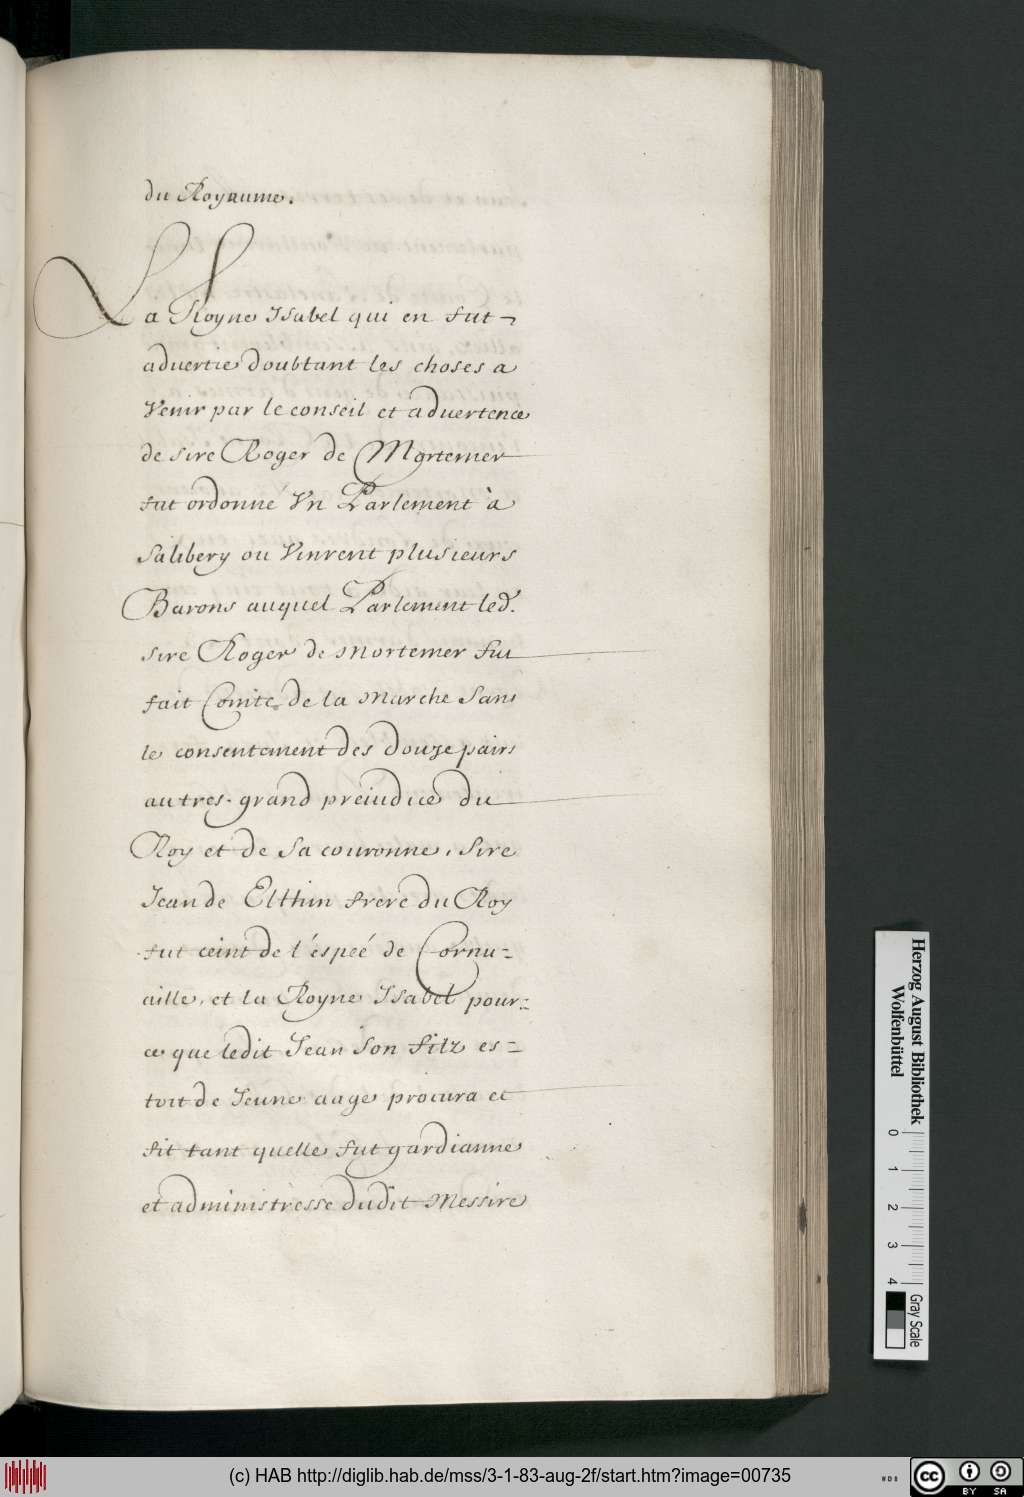 du Royaume.
La Royne Isabel qui en fut ¬
aduertie doubtant les choses a
Venir par le conseil et aduertence
de sire Roger de Mortemer
fut ordonné Vn Parlement à
Salibery ou Vinrent plusieurs
Barons auquel Parlement led.
sire Roger de Mortemer fut
fait Comte de la Marche Sans
le consentement des douze pairs
autres. grand preiudice du
Roy et de Sa couronne, Sire
Jean de Elthin frere du Roy
fut ceint de l'éspeé de Cornu=
aille, et la Royne Isabel pour=
ce que ledit Jean Son filz es=
toit de Jeune aage procura et
fit tant quelle fut gardianne
et administresse dudit Messire
Herzog August Bibliothek
Wolfenbüttel
0 1 2 3 4
Gray Scale
(c) HAB http://diglib.hab.de/mss/3-1-83-aug-2f/start.htm?image=00735
WDB
cc BY SA